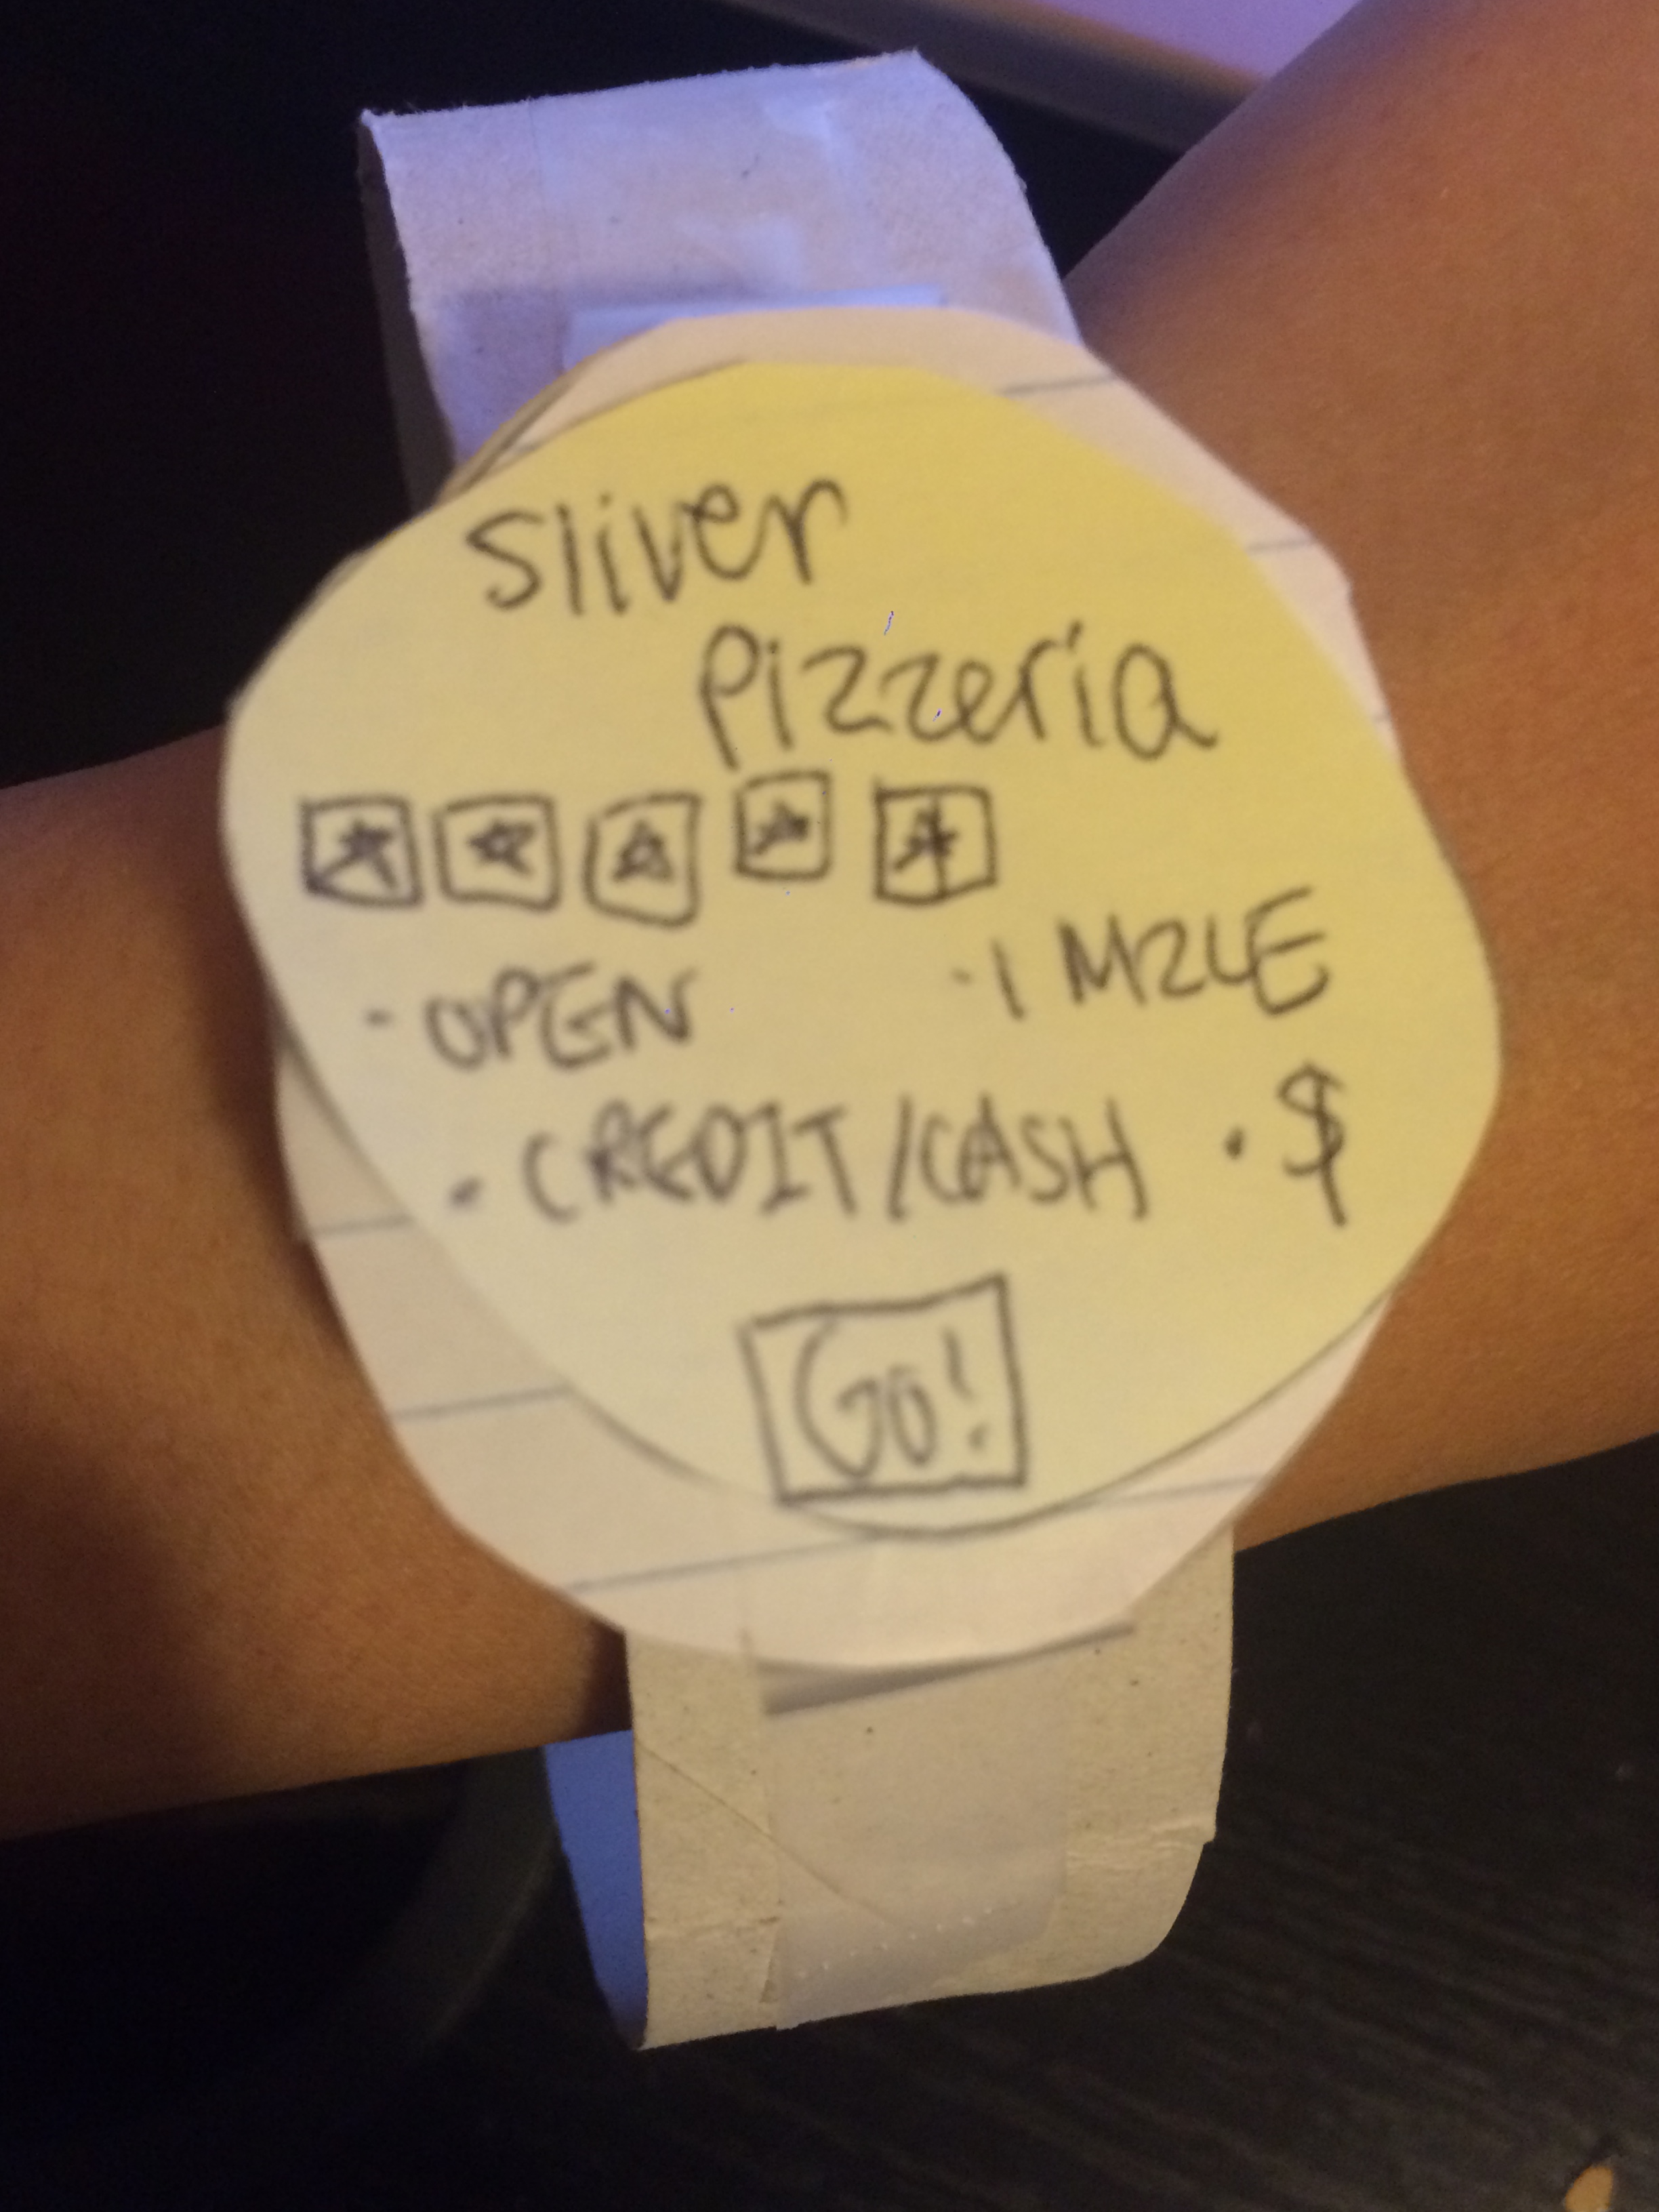 sliver
pizzeria
· OPEN · 1 MILE
· CREDIT/CASH · $
Go!